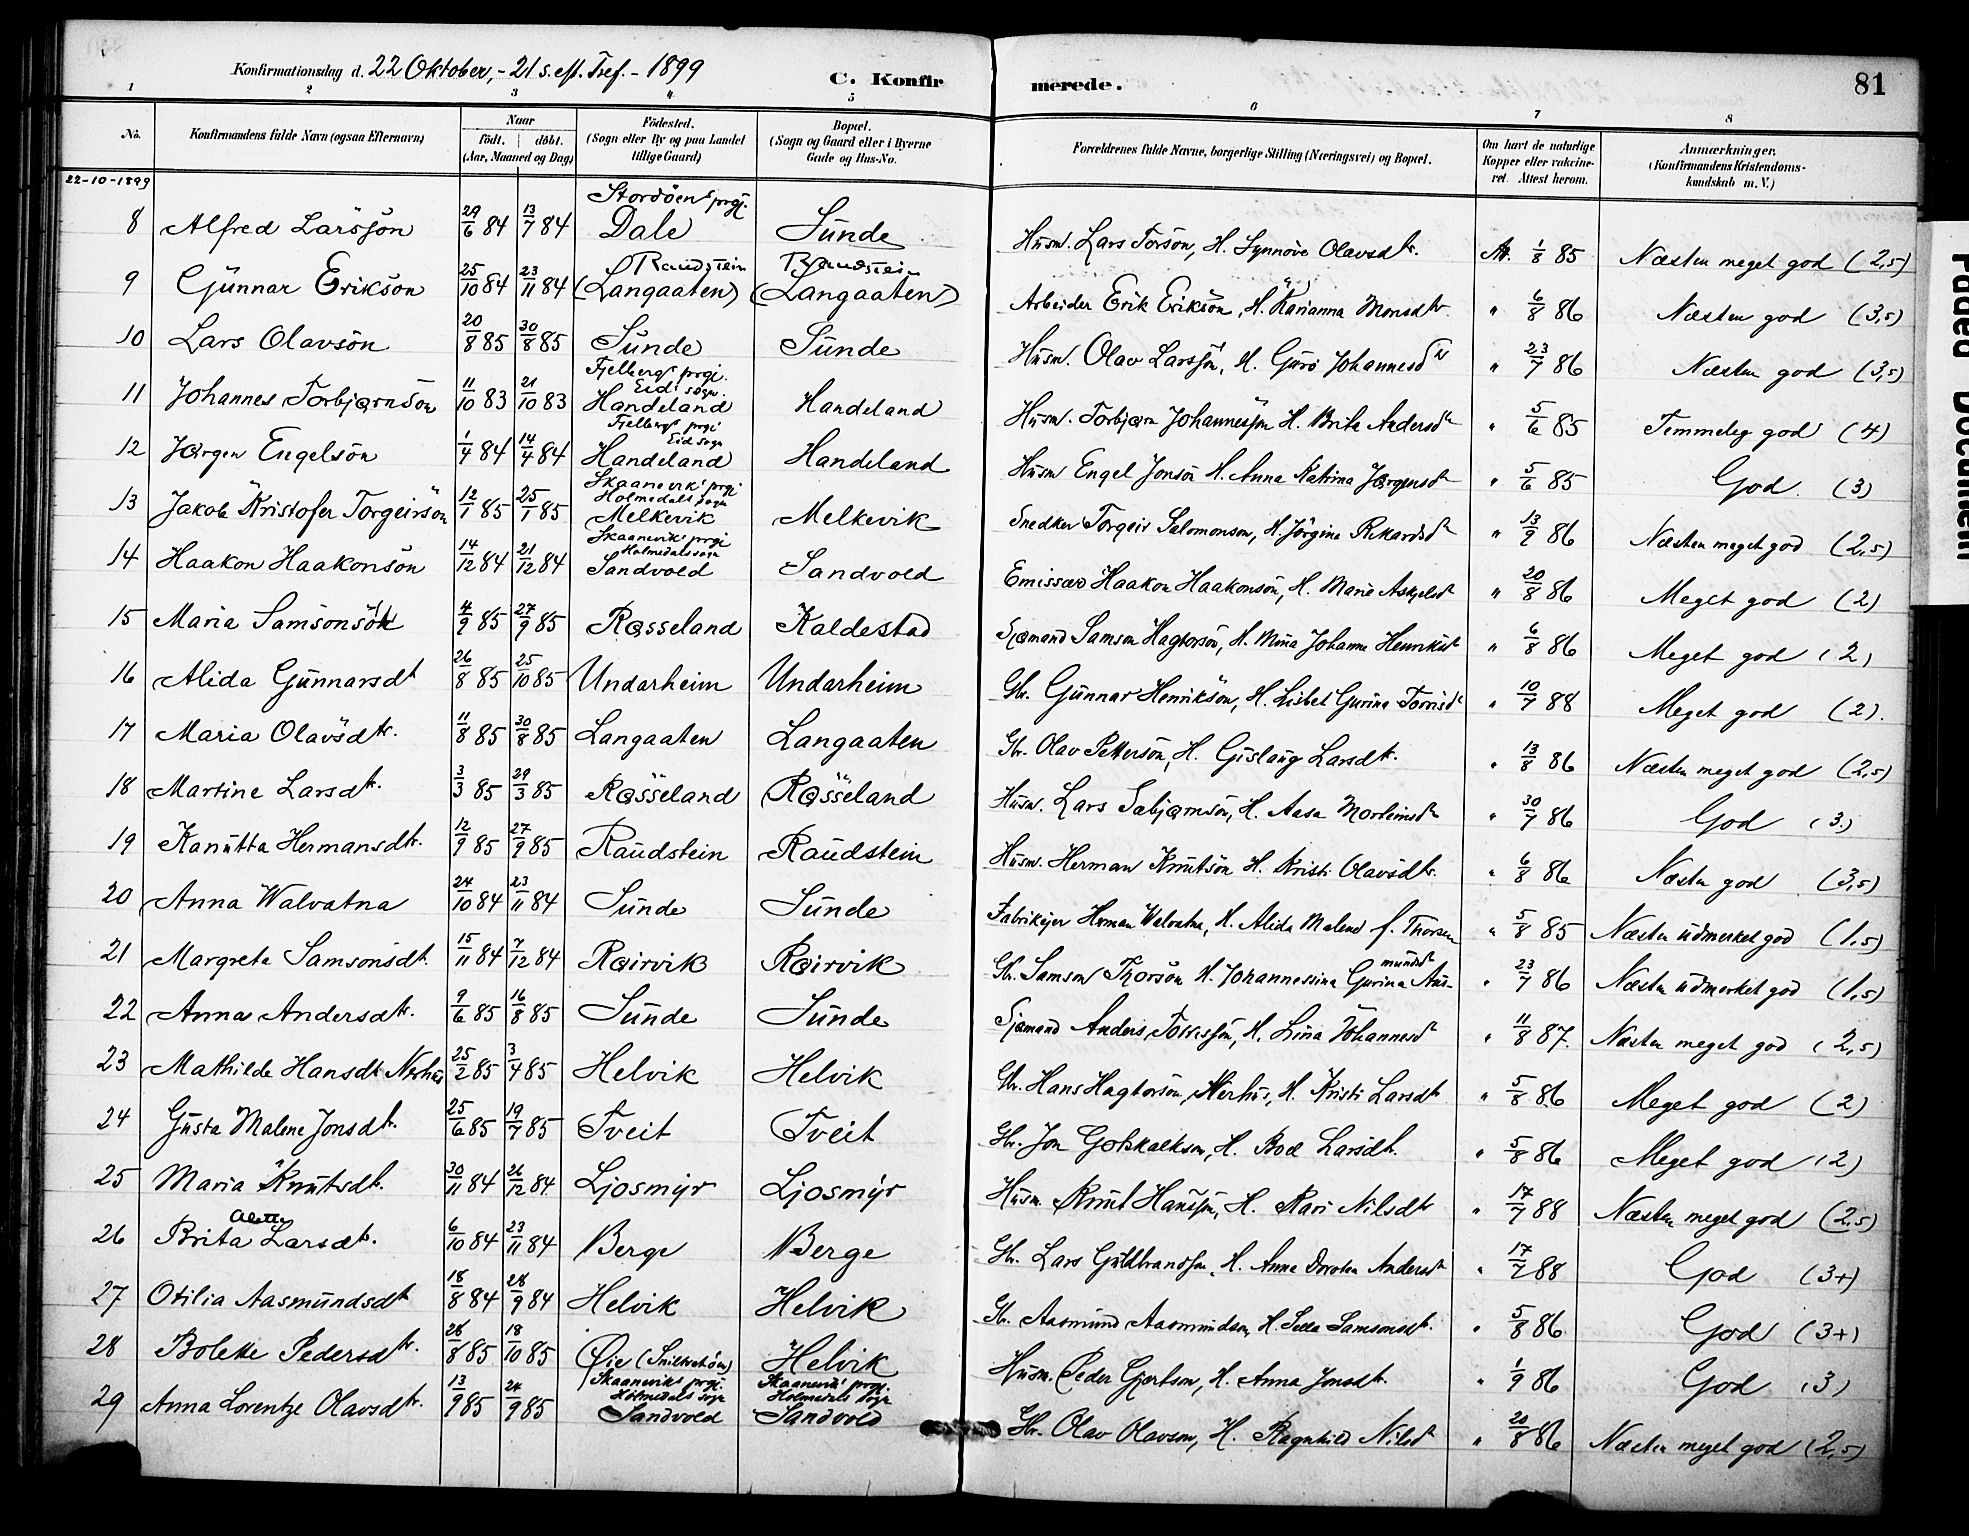 Konfirmationsdag d. 22 Oktober, - 21 s. eft. Tref. - 1899
C. Konfirmerede. 81
1 2 3 4 5 6 7 8
No. Konfirmandens fulde Navn (ogsaa Efternavn) Naar født. døbt. (Aar, Maaned og Dag) Fødested. (Sogn eller By og paa Landet tillige Gaard) Bopæl. (Sogn og Gaard eller i Byerne Gade og Hus-No. Forældrenes fulde Navne, borgerlige Stilling (Næringsvei) og Bopæl. Om havt de naturlige Kopper eller vakcineret. Attest herom. Anmærkninger. (Konfirmandens Kristendomskundskab m. V.)
22-10-1899
8 Alfred Larsson 29/6 84 13/7 84 Stordøens prgj. Dale Sunde Husm. Lars Torson, H. Synnove Olavsdtr. At. 1/8 85 Næsten meget god (2,5)
9 Gunnar Erikson 25/10 84 23/11 84 Raudstein (Langaaten) Raudstein (Langaaten) Arbeider Erik Erikson, H. Karianna Monsdtr. " 6/8 86 Næsten god (3,5)
10 Lars Olavson 20/8 85 30/8 85 Sunde Sunde Husm. Olav Larsson, H. Guro Johannesdtr " 23/7 86 Næsten god (3,5)
11 Johannes Torbjørnson 11/10 83 21/10 83 Fjelbergs prgj. Eids sogn Handeland Handeland Husm. Torbjørn Johannesson H. Brita Andersdtr " 5/6 85 Temmeleg god (4)
12 Jørgen Engelson 1/4 84 14/4 84 Fjelbergs prgj Eid sogn Handeland Handeland Husm Engel Jonson H. Anna Katrina Jørgensdtr " 5/6 85 God. (3)
13 Jakob Kristofer Torgeirson 12/1 85 25/1 85 Skaaneviks prgj Holmedals sogn Melkevik Melkevik Snedker Torgeir Salomonson, H. Jørgina Rikardsdtr " 13/9 86 Næsten meget god (2,5)
14 Haakon Haakonson 14/12 84 21/12 84 Skaaneviks prgj Holmedals sogn Sandvold Sandvold Emissær Haakon Haakonson, H. Marie Askjelsdtr " 20/8 86 Meget god (2)
15 Maria 4/9 85 27/9 85 Røsseland Kaldestad Sjømand Samson Hagtorson, H. Mina Johanna Henriksdtr " 6/8 86 Meget god (2)
16 Alida Gunnarsdt 26/8 85 25/10 85 Undarheim Undarheim Gbr. Gunnar Henrikson, H. Lisbet Gurina Torrisdtr " 10/7 88 Meget god (2).
17 Maria Olavsdtr. 11/8 85 30/8 85 Langaaten Langaaten Gbr. Olav Petterson, H. Gislaug Larsdtr. " 13/8 86 Næsten meget god (2,5)
18 Martine Larsdtr. 3/3 85 29/3 85 Røsseland Røsseland Husm. Lars Sebjørnson, H. Aasa Mortensdtr " 30/7 86 God (3.)
19 Kanutta Hermansdtr. 12/9 85 27/9 85 Raudstein Raudstein Husm. Herman Knutson H. Kristi Olavsdtr. " 6/8 86 Næsten god (3,5)
20 Anna Walvatna 24/10 84 23/11 84 Sunde Sunde Fabrikejer Herman Walvatna, H. Alida Malene f. Thorsen " 5/8 85 Næsten udmerket god (1,5)
21 Margreta Samsonsdt. 15/11 84 7/12 84 Røirvik Røirvik Gbr. Samson Thorson H. Johannessina Gurina Aasmundsdt " 23/7 86 Næsten udmerket god (1,5)
22 Anna Andersdtr. 9/6 85 16/8 85 Sunde Sunde Sjømand Anders Torresson, H. Lina Johannesdt " 11/8 87. Næsten meget god (2,5)
23 Mathilde Hansdt. Nerhus 25/2 85 3/4 85 Helvik Helvik Gbr. Hans Hagtorson Nerhus, H. Kristi Larsdtr " 5/8 86 Meget god (2)
24 Gusta Malene Jonsdtr. 25/6 85 19/7 85 Tveit Tveit Gbr. Jon Gotskalkson, H. Boel Larsdtr. " 5/8 86 Meget god (2)
25 Maria Knutsdt. 30/11 84 26/12 84 Ljosmyr Ljosmyr Husm. Knut Hansson, H. Kari Nilsdtr " 17/7 88 Næsten meget god (2,5)
26 Brita Aletta Larsdtr. 6/10 84 23/11 84 Berge Berge Gbr. Lars Guldbrandson, H. Anna Dorotea Andersdtr " 17/7 88 God (3+)
27 Otilia Aasmundsdtr 18/8 84 28/9 84 Helvik Helvik Gbr. Aasmund Aasmundson, H. Samsonsdtr. " 5/8 86 God (3+)
28 Bolette Pedersdtr. 28/8 85 18/10 85 Øie Helvik Husm. Peder Gjertson, H. Anna Jonsdtr. " 1/9 86 God (3)
29 Anna Lorentze Olavsdtr. 13/9 85 24/9 85 Skaaneviks prgj. Holmedals sogn Sandvold Skaaneviks prgj. Holmedals sogn Sandvold Gbr. Olav Olavson, H. Ragnhild Nilsdt " 20/8 86 Næsten meget god (2,5)
Paded Document